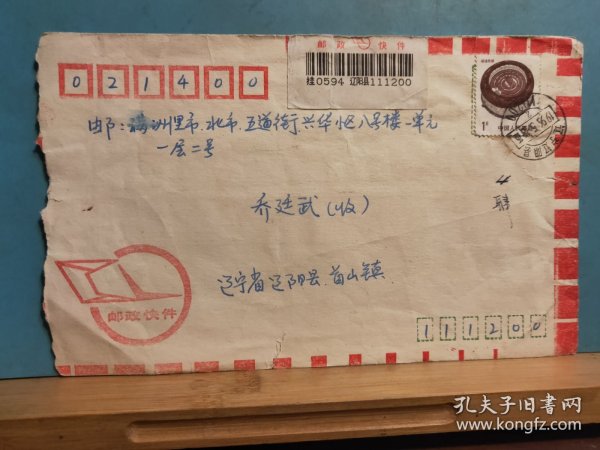 邮政快件
021400
挂0594 辽阳县111200
1元 中国人民邮政
由邮:满洲里市.北市.五道街.兴华小区八号楼一单元
一层二号
乔廷武(收)
辽宁省辽阳县.首山镇
邮政快件
111200
孔夫子旧书网
www.kongfz.com